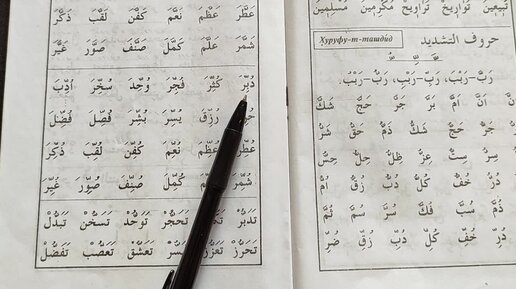 تَوَارِيخَ تَرَاوِيحَ مُكْرَمِينَ مُسْلِمِينَ
حروف التشديد Хуруфу-т-ташдид
رَبَّ-رَبْبَ، رَبِّ-رَبْبِ، رَبُّ-رَبْبُ.
اَنَّ اَمَّ بَرَّ جَرَّ حَجَّ شَكَّ
شَكَّ حَجَّ جَرَّ حَقَّ شَرُّ
سِرَّ سِتَّ عِزَّ ظِلَّ حِلَّ حِسَّ
دُرُّ خُفُّ كُلُّ دُبُّ زُقُّ اُمُّ
ذُمَّ سُبَّ فُكَّ سُرَّ سُمَّ ثُمَّ
دُرِّ خُفِّ كُلِّ دُبِّ زُقِّ ضُرِّ
عَطَّرَ عَظَّمَ نَعَّمَ كَفَّنَ لَقَّبَ ذَكَّرَ
شَمَّرَ عَلَّمَ كَمَّلَ صَنَّفَ صَوَّرَ غَيَّرَ
دُبِّرَ كُثِّرَ فُجِّرَ وُحِّدَ سُخِّرَ اُدِّبَ
رُزِّقَ يُسِّرَ بُشِّرَ فُصِّلَ فُضِّلَ
عُطِّرَ عُظِّمَ نُعِّمَ كُفِّنَ لُقِّبَ ذُكِّرَ
شُمِّرَ كُمِّلَ صُنِّفَ صُوِّرَ غُيِّرَ
تَدَبُّرُ تَحَجُّرُ تَوَحُّدُ تَسَخُّنُ تَبَدُّلُ
تَحَرُّزُ تَعَزُّزُ تَعَشُّقُ تَعَصُّبُ تَفَضُّلُ